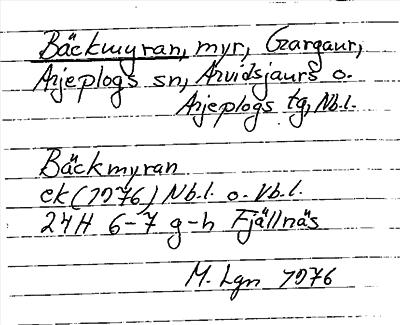 Bäckmyran, myr, Gargaur,
Arjeplogs sn, Arvidsjaurs o.
Arjeplogs tg, Nb.l.
Bäckmyran
ek (1976) Nb.l. o. Vb.l.
24H 6-7 g-h Fjällnäs
M. Lgn 1976